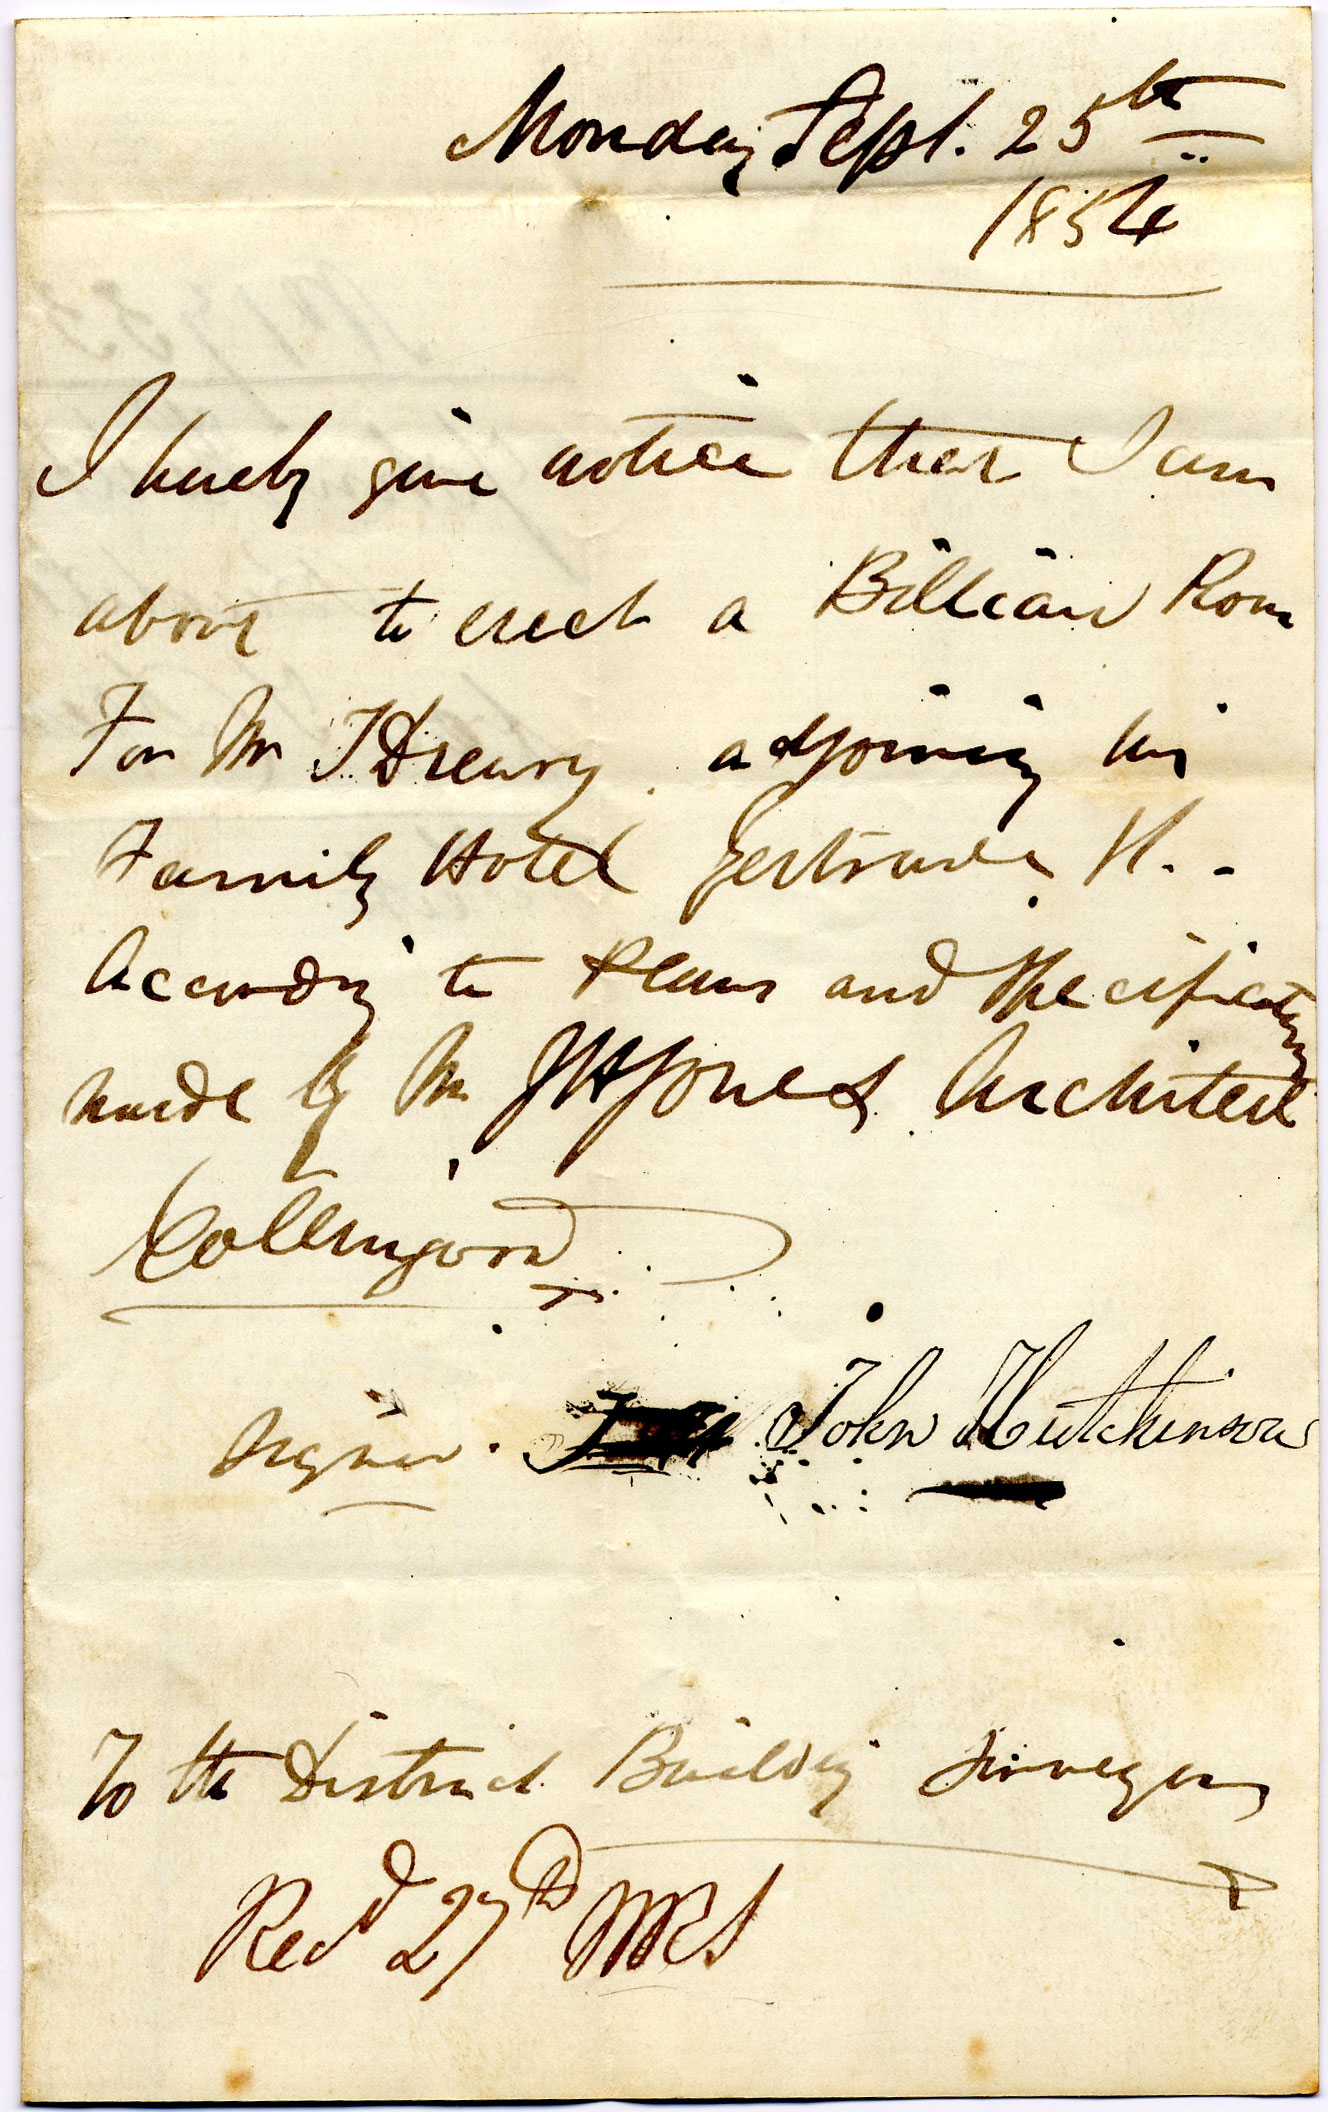 Monday Sept. 25th
1854
I hereby give notice that I am
about to erect a Billiard Room
For Mr T Drewry adjoining his
Family Hotel Gertrude St.
According to Plans and Specifications
made by Mr J H Jones Architect
Collingwood
Signed. John Hutchinson
To the District Building Surveyor
Recd 27th